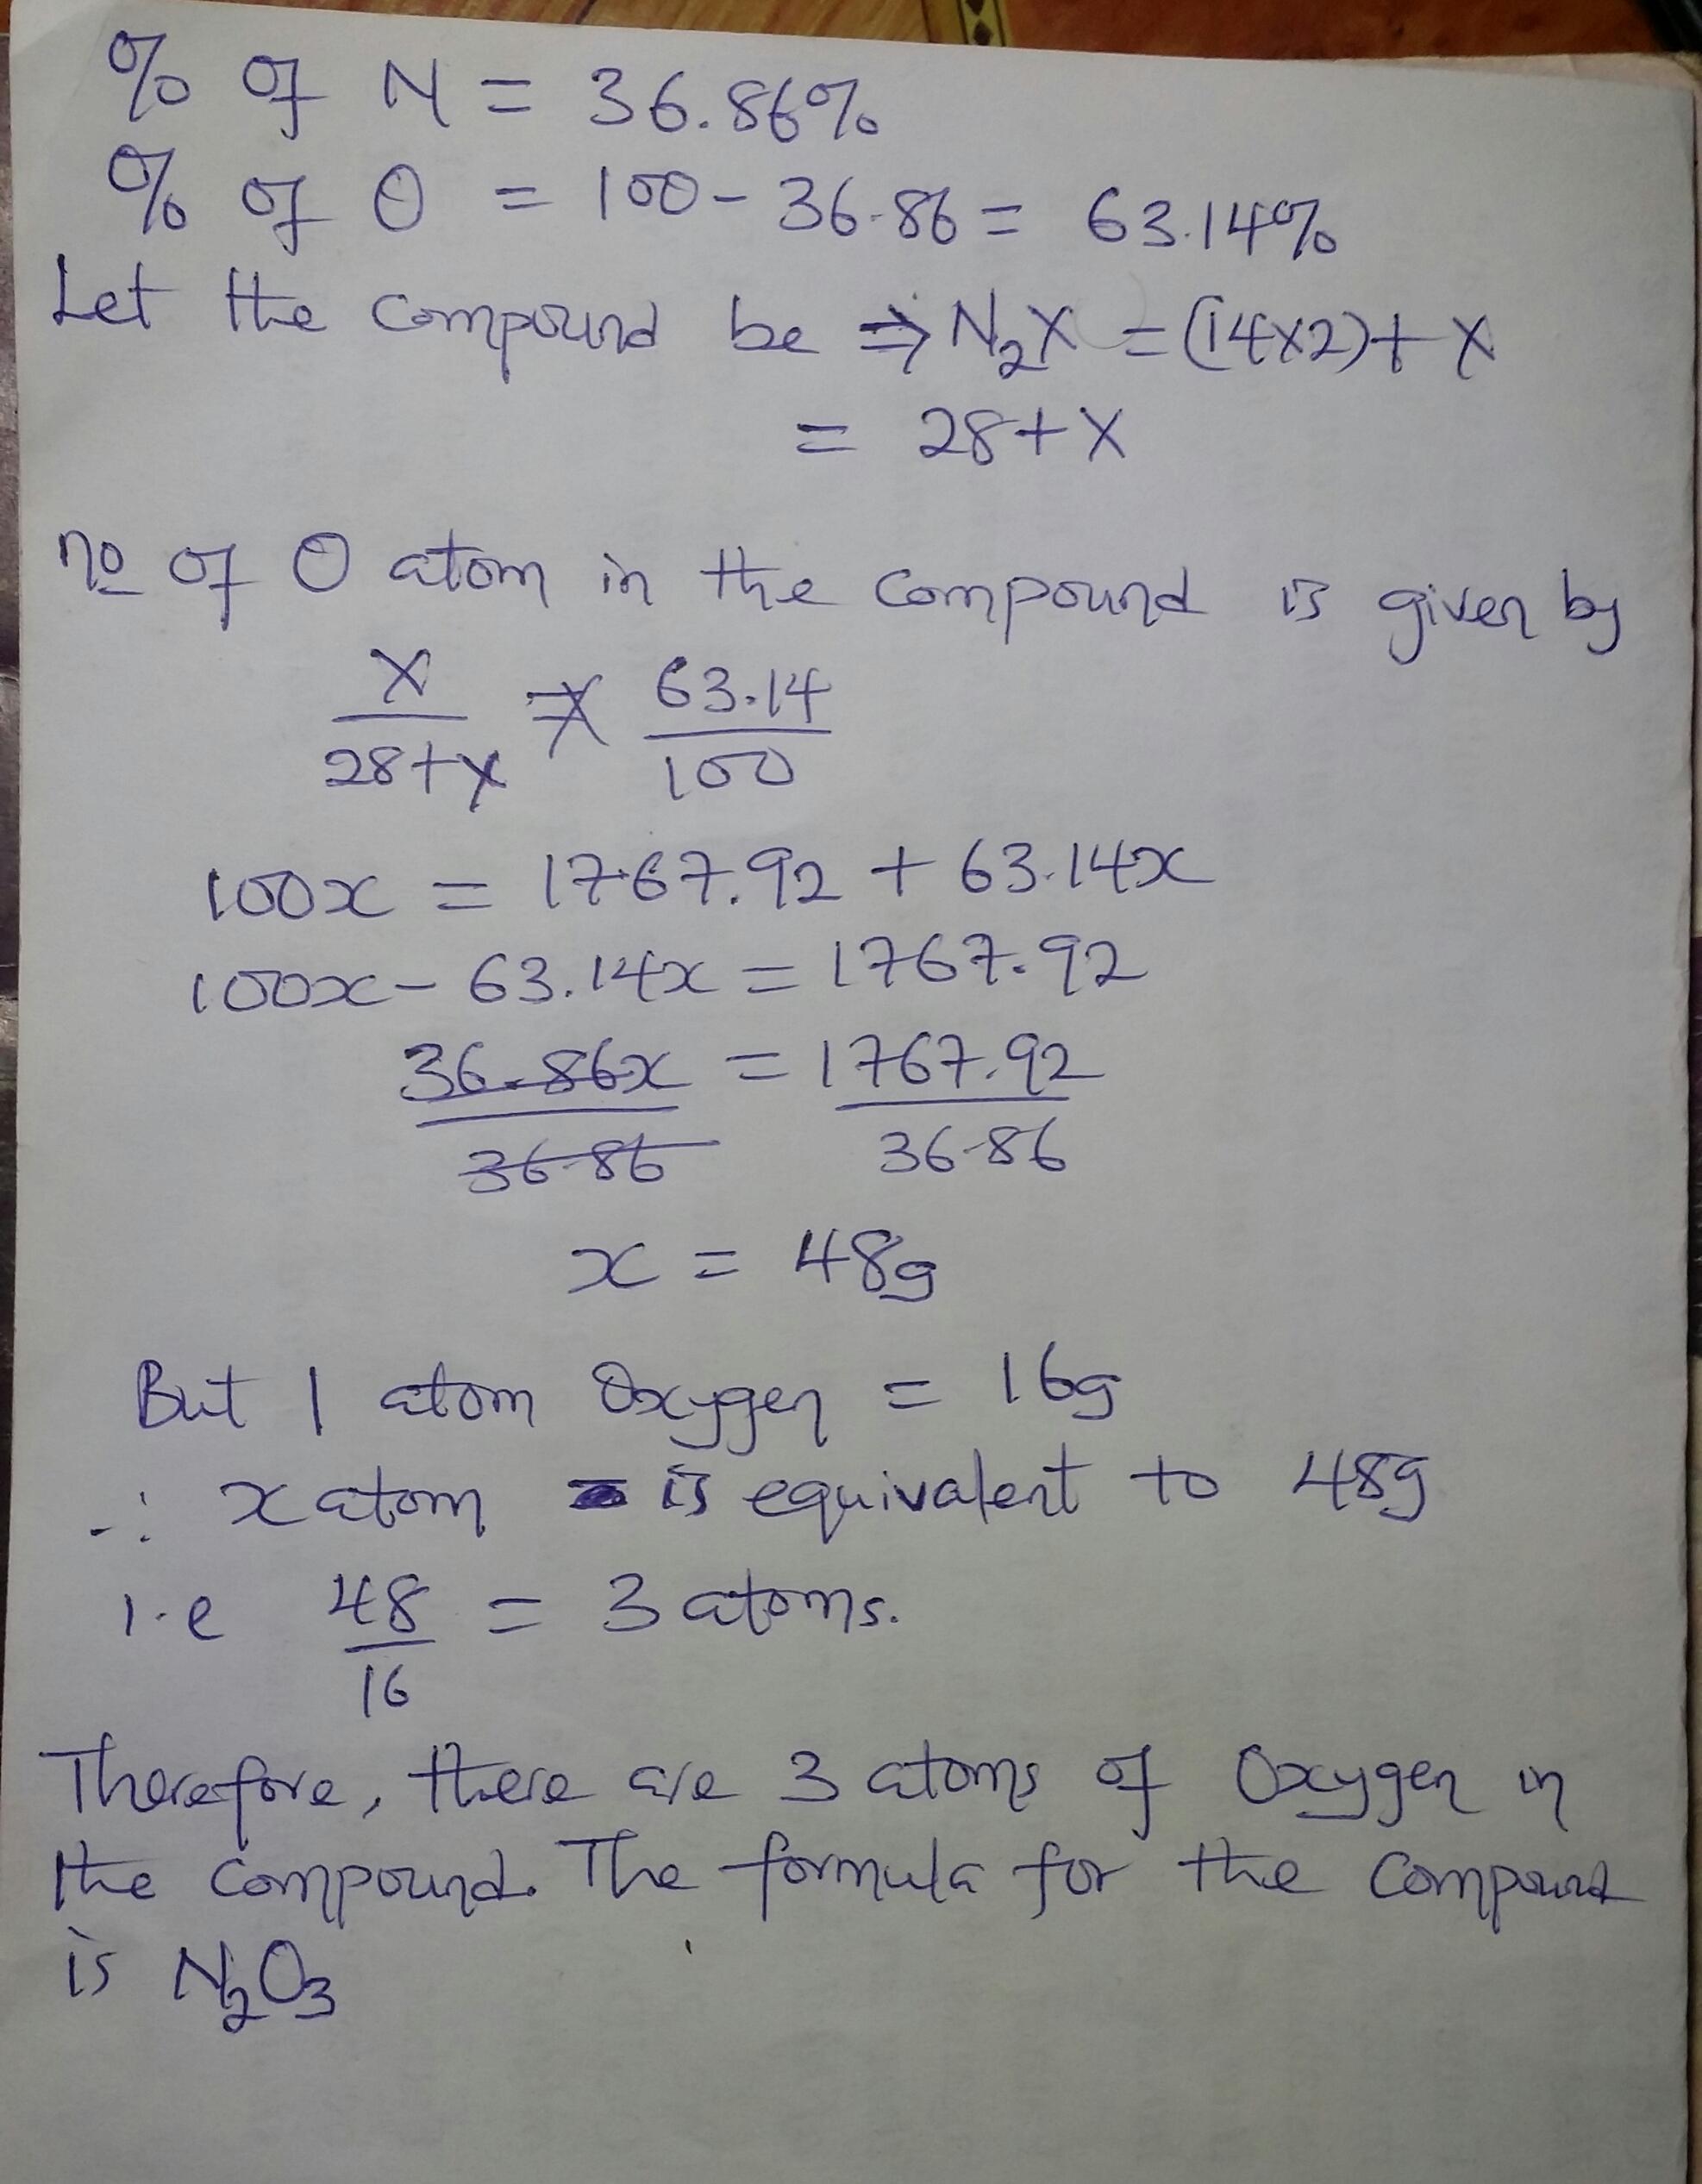 % of N = 36.86%
% of O = 100 - 36.86 = 63.14%
Let the compound be ⇒ N₂X = (14x2) + X
= 28 + X
no of O atom in the compound is given by
X/28+x = 63.14/100
100x = 1767.92 + 63.14x
100x - 63.14x = 1767.92
36.86x/36.86 = 1767.92/36.86
x = 48g
But 1 atom Oxygen = 16g
∴ x atom is equivalent to 48g
i.e 48/16 = 3 atoms.
Therefore, there are 3 atoms of Oxygen in
the compound. The formula for the compound
is N₂O₃